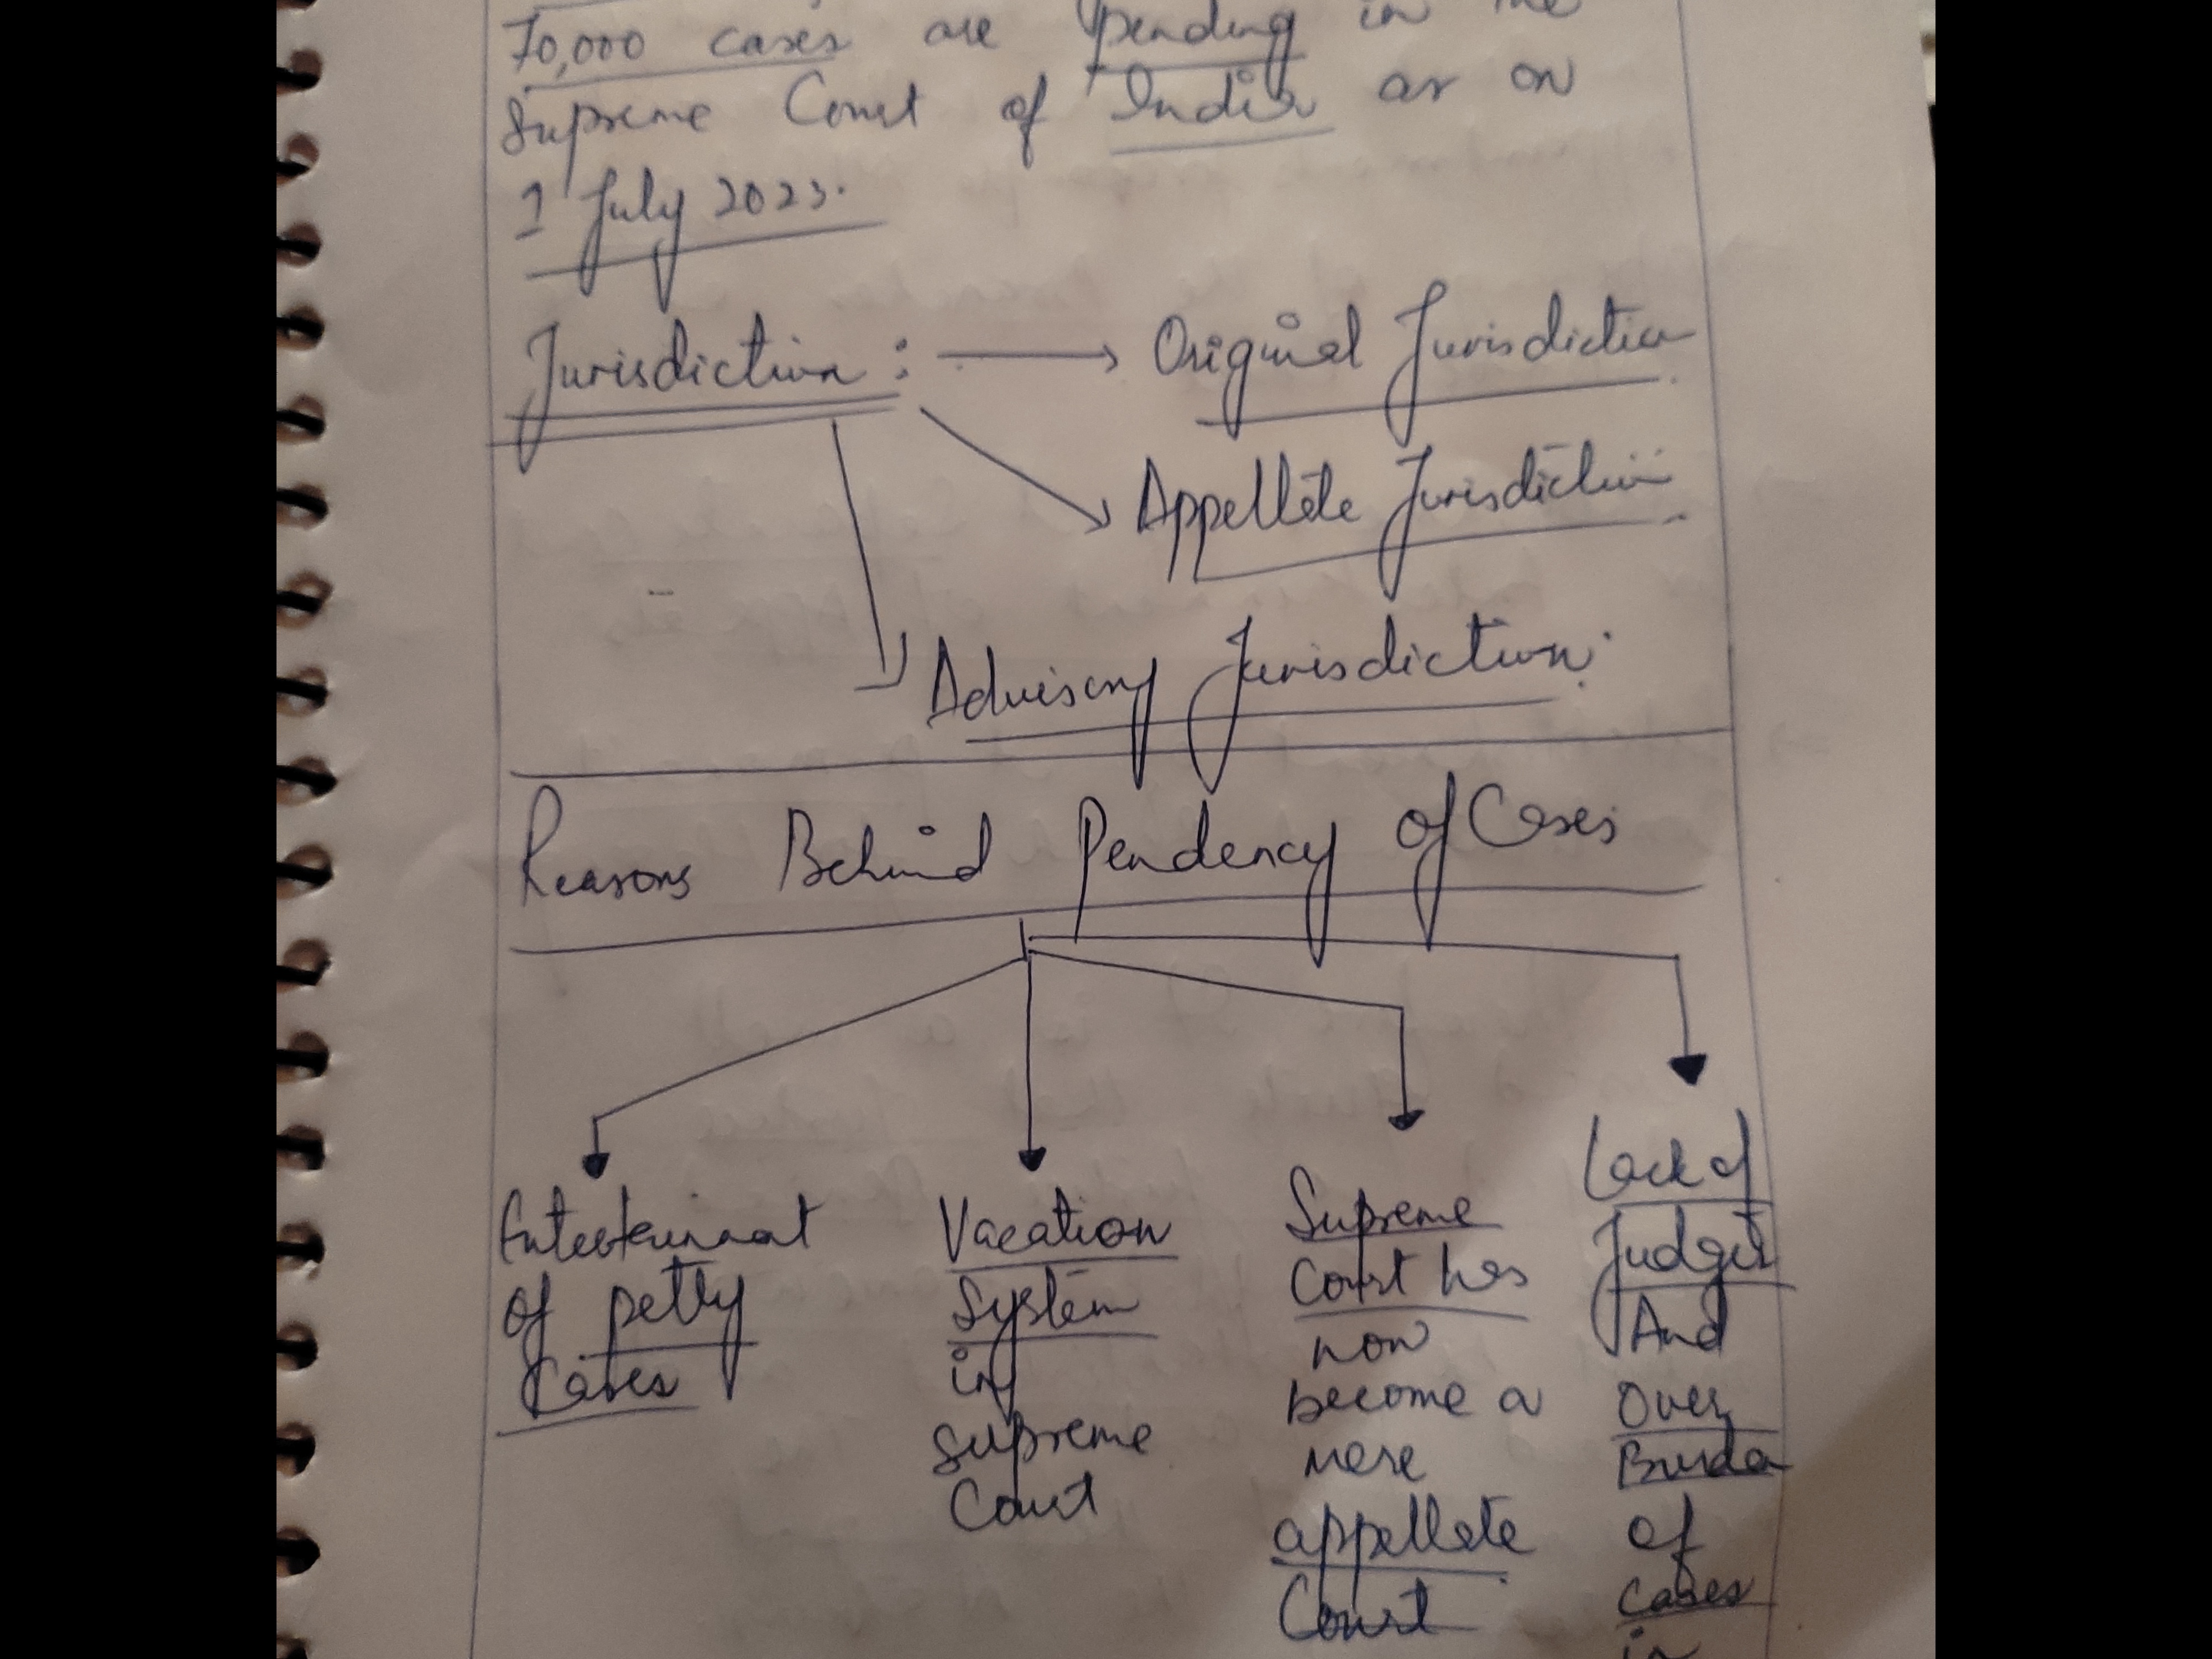 70,000 cases are pending in the
Supreme Court of India as on
1 July 2023.
Jurisdiction : → Original Jurisdiction
Appellate Jurisdiction
Advisory Jurisdiction
Reasons Behind Pendency of Cases
Entertainment
of petty
Cases
Vacation
System
in
Supreme
Court
Supreme
Court has
now
become a
mere
appellate
Court
Lack of
Judges
And
Over
Burden
of
cases
in